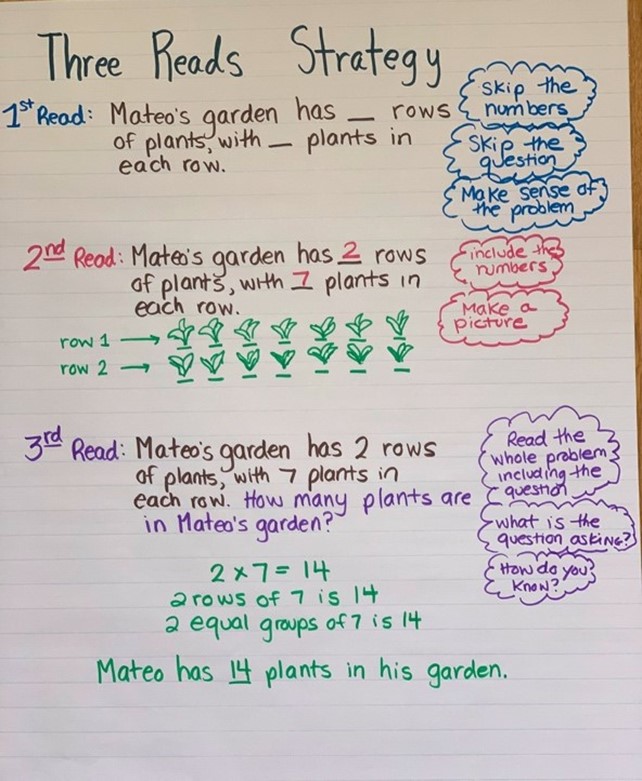 Three Reads Strategy
1st Read: Mateo's garden has _ rows
of plants, with _ plants in
each row.
Skip the
numbers
Skip the
question
Make sense of
the problem
2nd Read: Mateo's garden has 2 rows
of plants, with 7 plants in
each row.
include the
numbers
Make a
picture
row 1 →
row 2 →
3rd Read: Mateo's garden has 2 rows
of plants, with 7 plants in
each row. How many plants are
in Mateo's garden?
Read the
whole problem
including the
question
what is the
question asking?
How do you
know?
2 × 7 = 14
2 rows of 7 is 14
2 equal groups of 7 is 14
Mateo has 14 plants in his garden.